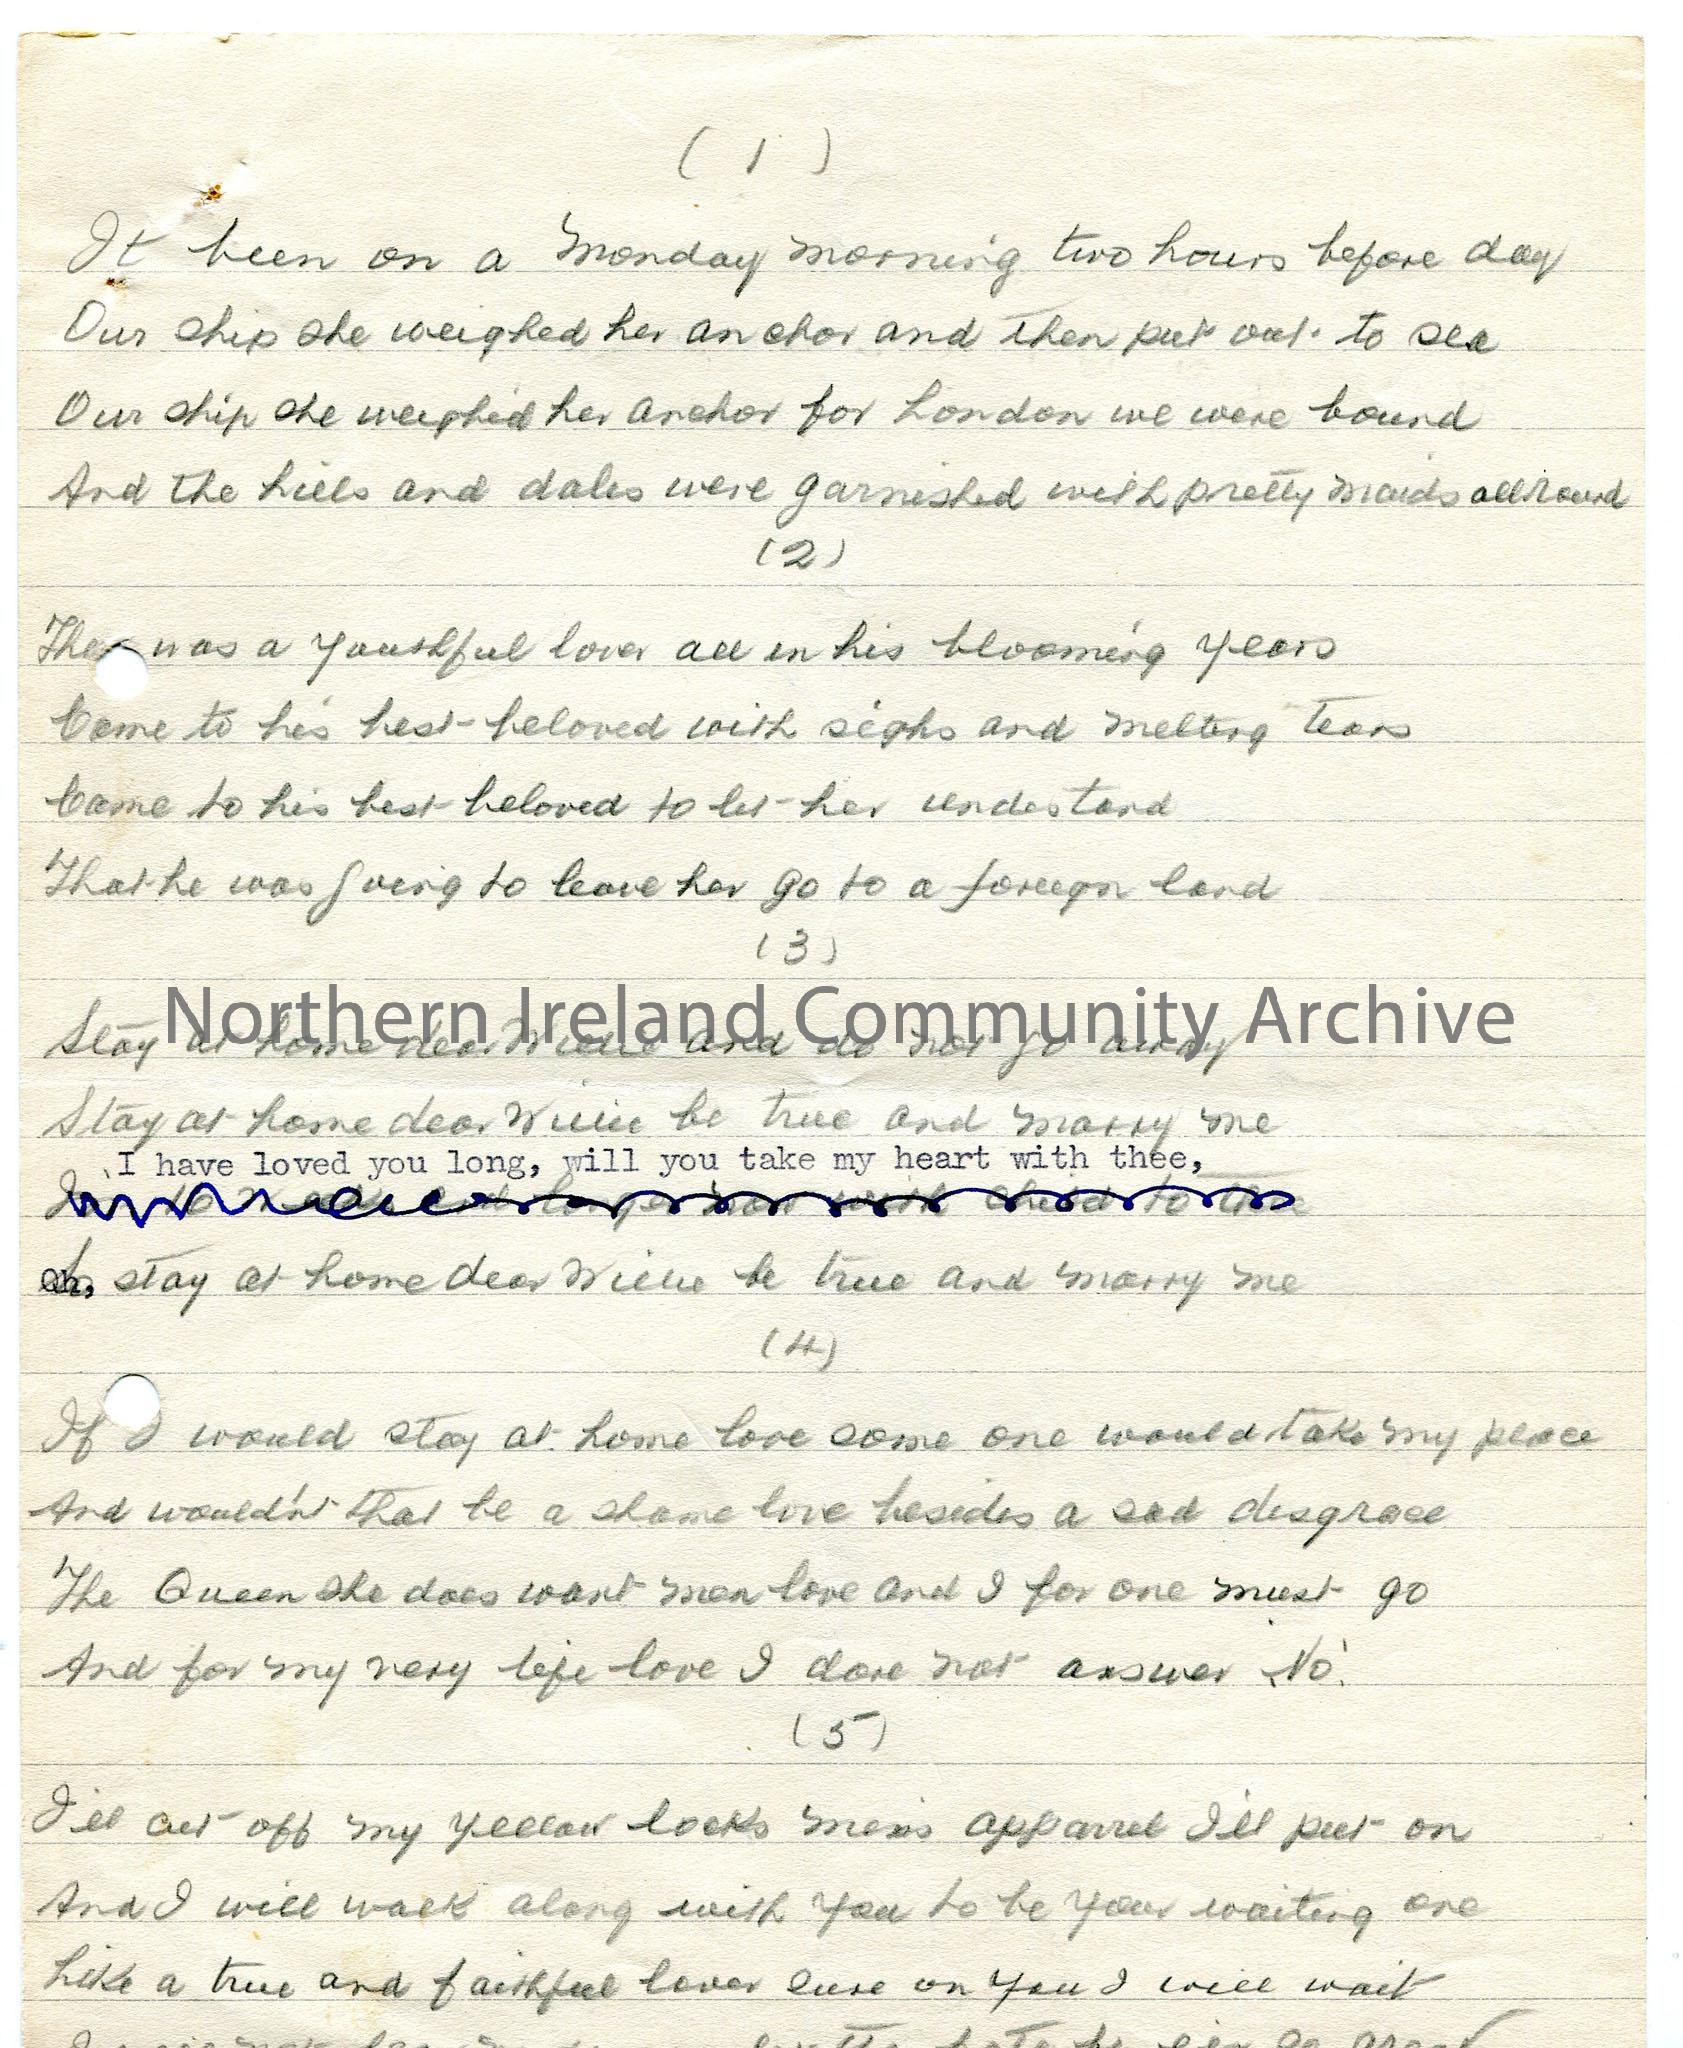 ( 1 )
It been on a Monday morning two hours before day
Our ship she weighed her anchor and then put out to sea
Our ship she weighed her anchor for London we were bound
And the hills and dales were garnished with pretty maids all round
(2)
The was a youthful lover all in his blooming years
Came to his best beloved with sighs and melting tears
Came to his best beloved to let her understand
That he was going to leave her go to a foreign land
(3)
Northern Ireland Community Archive
Stay at home dear Willie and do not go away
Stay at home dear Willie be true and marry me
I have loved you long, will you take my heart with thee,
longer with child to thee
Oh, stay at home dear Willie be true and marry me
(4)
If I would stay at home love some one would take my place
And wouldn't that be a shame love besides a sad disgrace
The Queen she does want men love and I for one must go
And for my very life love I dare not answer 'No'.
(5)
I'll cut off my yellow locks men's apparrel I'll put on
And I will walk along with you to be your waiting one
Like a true and faithful lover sure on you I will wait